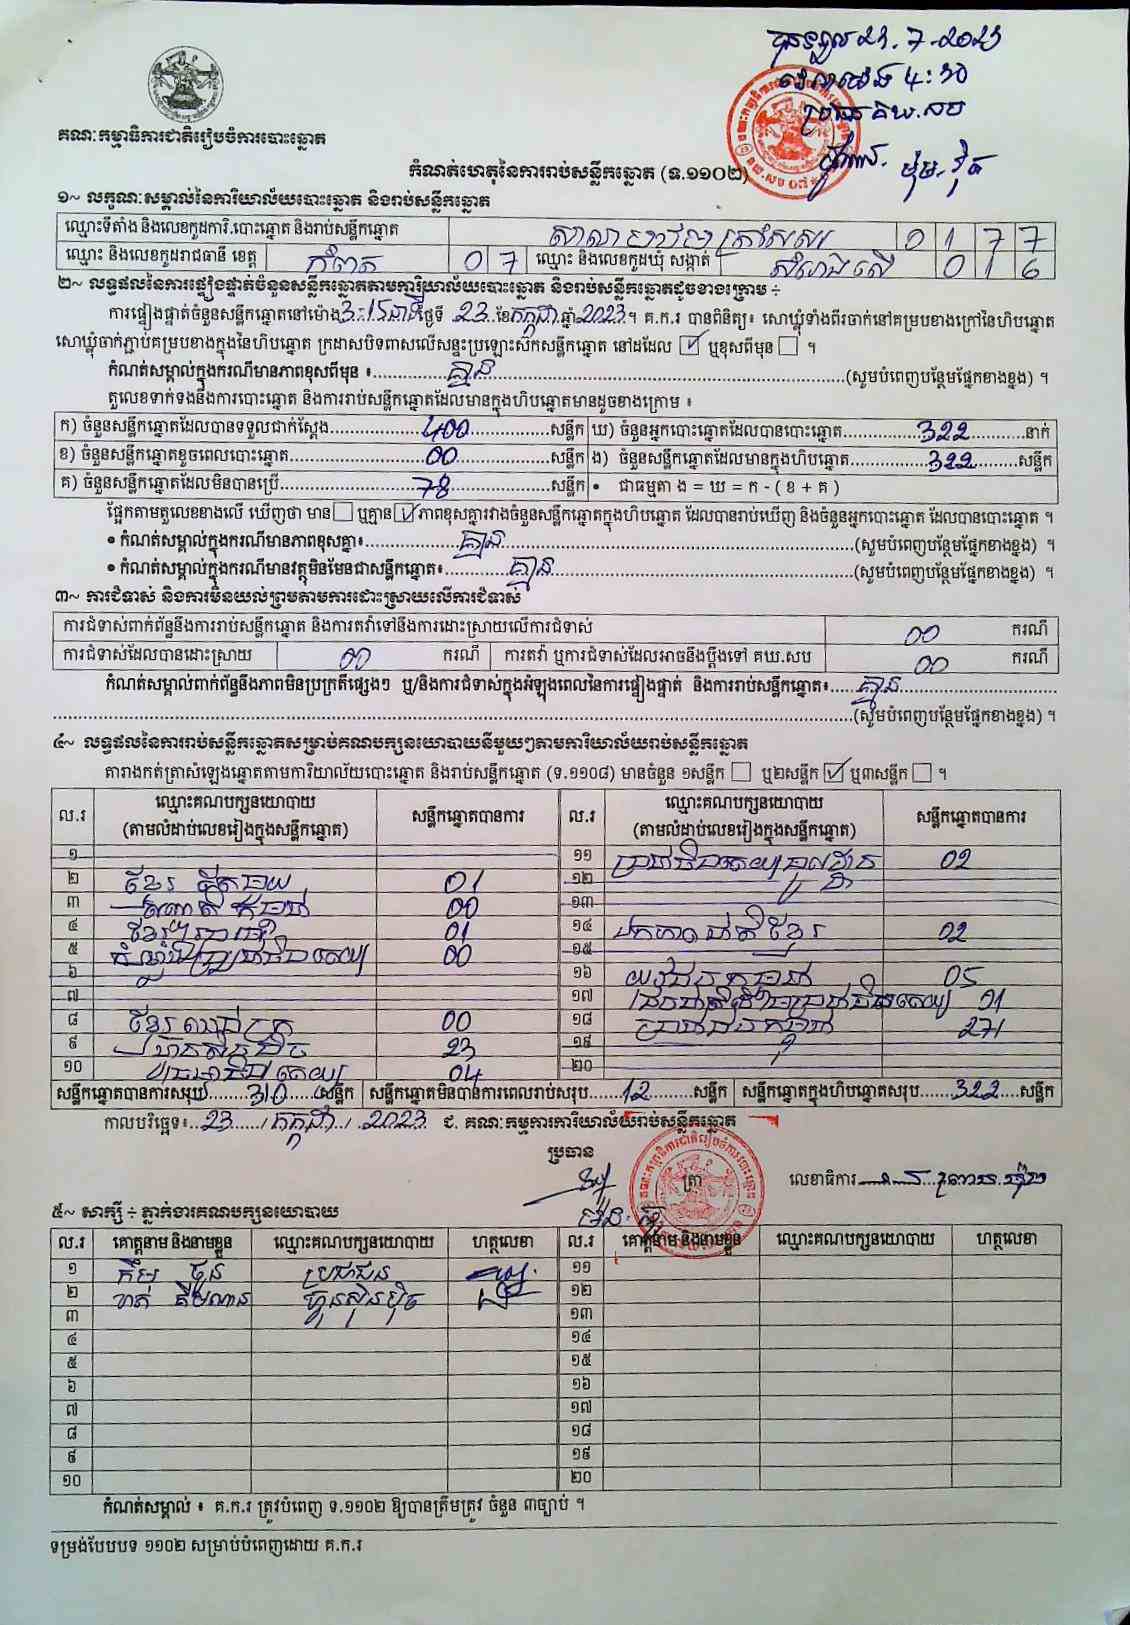 បានទទួល 23.7.2023
វេលាម៉ោង 4:30
ប្រធាន គឃ.សប
គណៈកម្មាធិការជាតិរៀបចំការបោះឆ្នោត
កំណត់ហេតុនៃការរាប់សន្លឹកឆ្នោត (ទ.១១០២)
១~ លក្ខណៈសម្គាល់នៃការិយាល័យបោះឆ្នោត និងរាប់សន្លឹកឆ្នោត
ឈ្មោះទីតាំង និងលេខកូដការិ.បោះឆ្នោត និងរាប់សន្លឹកឆ្នោត សាលា 0 1 7 7
ឈ្មោះ និងលេខកូដរាជធានី ខេត្ត កំពត 0 7 ឈ្មោះ និងលេខកូដឃុំ សង្កាត់ 0 1 6
២~ លទ្ធផលនៃការផ្ទៀងផ្ទាត់ចំនួនសន្លឹកឆ្នោតតាមការិយាល័យបោះឆ្នោត និងរាប់សន្លឹកឆ្នោតដូចខាងក្រោម ÷
ការផ្ទៀងផ្ទាត់ចំនួនសន្លឹកឆ្នោតនៅម៉ោង 3:15នាទី ថ្ងៃទី 23 ខែ កក្កដា ឆ្នាំ 2023។ គ.ក.រ បានពិនិត្យ៖ សោឃ្លុំទាំងពីរចាក់នៅគម្របខាងក្រៅនៃហិបឆ្នោត
សោឃ្លុំចាក់ភ្ជាប់គម្របខាងក្នុងនៃហិបឆ្នោត ក្រដាសបិទពាសលើសន្ទះប្រឡោះស៊កសន្លឹកឆ្នោត នៅដដែល ☑ ឬខុសពីមុន ☐ ។
កំណត់សម្គាល់ក្នុងករណីមានភាពខុសពីមុន ៖ គ្មាន (សូមបំពេញបន្ថែមផ្នែកខាងខ្នង) ។
តួលេខទាក់ទងនឹងការបោះឆ្នោត និងការរាប់សន្លឹកឆ្នោតដែលមានក្នុងហិបឆ្នោតមានដូចខាងក្រោម ៖
ក) ចំនួនសន្លឹកឆ្នោតដែលបានទទួលជាក់ស្តែង 400 សន្លឹក ឃ) ចំនួនអ្នកបោះឆ្នោតដែលបានបោះឆ្នោត 322 នាក់
ខ) ចំនួនសន្លឹកឆ្នោតខូចពេលបោះឆ្នោត 00 សន្លឹក ង) ចំនួនសន្លឹកឆ្នោតដែលមានក្នុងហិបឆ្នោត 322 សន្លឹក
គ) ចំនួនសន្លឹកឆ្នោតដែលមិនបានប្រើ 78 សន្លឹក • ជាធម្មតា ង = ឃ = ក - ( ខ + គ )
ផ្អែកតាមតួលេខខាងលើ ឃើញថា មាន ☐ ឬគ្មាន ☑ ភាពខុសគ្នារវាងចំនួនសន្លឹកឆ្នោតក្នុងហិបឆ្នោត ដែលបានរាប់ឃើញ និងចំនួនអ្នកបោះឆ្នោត ដែលបានបោះឆ្នោត ។
• កំណត់សម្គាល់ក្នុងករណីមានភាពខុសគ្នា៖ គ្មាន (សូមបំពេញបន្ថែមផ្នែកខាងខ្នង) ។
• កំណត់សម្គាល់ក្នុងករណីមានវត្ថុមិនមែនជាសន្លឹកឆ្នោត៖ គ្មាន (សូមបំពេញបន្ថែមផ្នែកខាងខ្នង) ។
៣~ ការជំទាស់ និងការមិនយល់ព្រមតាមការដោះស្រាយលើការជំទាស់
ការជំទាស់ពាក់ព័ន្ធនឹងការរាប់សន្លឹកឆ្នោត និងការតវ៉ាទៅនឹងការដោះស្រាយលើការជំទាស់ 00 ករណី
ការជំទាស់ដែលបានដោះស្រាយ 00 ករណី ការតវ៉ា ឬការជំទាស់ដែលអាចនឹងប្តឹងទៅ គឃ.សប 00 ករណី
កំណត់សម្គាល់ពាក់ព័ន្ធនឹងភាពមិនប្រក្រតីផ្សេងៗ ឬ/និងការជំទាស់ក្នុងអំឡុងពេលនៃការផ្ទៀងផ្ទាត់ និងការរាប់សន្លឹកឆ្នោត៖ គ្មាន
(សូមបំពេញបន្ថែមផ្នែកខាងខ្នង) ។
៤~ លទ្ធផលនៃការរាប់សន្លឹកឆ្នោតសម្រាប់គណបក្សនយោបាយនីមួយៗតាមការិយាល័យរាប់សន្លឹកឆ្នោត
តារាងកត់ត្រាសំឡេងឆ្នោតតាមការិយាល័យបោះឆ្នោត និងរាប់សន្លឹកឆ្នោត (ទ.១១០៨) មានចំនួន ១សន្លឹក ☐ ឬ២សន្លឹក ☑ ឬ៣សន្លឹក ☐ ។
ល.រ ឈ្មោះគណបក្សនយោបាយ (តាមលំដាប់លេខរៀងក្នុងសន្លឹកឆ្នោត) សន្លឹកឆ្នោតបានការ ល.រ ឈ្មោះគណបក្សនយោបាយ (តាមលំដាប់លេខរៀងក្នុងសន្លឹកឆ្នោត) សន្លឹកឆ្នោតបានការ
១ ១១ 02
២ ខ្មែរ 01 ១២
៣ 00 ១៣
៤ ខ្មែរ 01 ១៤ ឯកភាពជាតិខ្មែរ 02
៥ 00 ១៥
៦ ១៦ យុវជនកម្ពុជា 05
៧ ១៧ 11
៨ ខ្មែរ 00 ១៨ ប្រជាជនកម្ពុជា 271
៩ ហ្វ៊ុនស៊ិនប៉ិច 23 ១៩
១០ 04 ២០
សន្លឹកឆ្នោតបានការសរុប 310 សន្លឹក សន្លឹកឆ្នោតមិនបានការពេលរាប់សរុប 12 សន្លឹក សន្លឹកឆ្នោតក្នុងហិបឆ្នោតសរុប 322 សន្លឹក
កាលបរិច្ឆេទ៖ 23 / កក្កដា / 2023 ជ. គណៈកម្មការការិយាល័យរាប់សន្លឹកឆ្នោត
ប្រធាន
ត្រា
លេខាធិការ
៥~ សាក្សី ÷ ភ្នាក់ងារគណបក្សនយោបាយ
ល.រ គោត្តនាម និងនាមខ្លួន ឈ្មោះគណបក្សនយោបាយ ហត្ថលេខា ល.រ គោត្តនាម និងនាមខ្លួន ឈ្មោះគណបក្សនយោបាយ ហត្ថលេខា
១ ប្រជាជន ១១
២ ហ្វ៊ុនស៊ិនប៉ិច ១២
៣ ១៣
៤ ១៤
៥ ១៥
៦ ១៦
៧ ១៧
៨ ១៨
៩ ១៩
១០ ២០
កំណត់សម្គាល់ ៖ គ.ក.រ ត្រូវបំពេញ ទ.១១០២ ឱ្យបានត្រឹមត្រូវ ចំនួន ៣ច្បាប់ ។
ទម្រង់បែបបទ ១១០២ សម្រាប់បំពេញដោយ គ.ក.រ